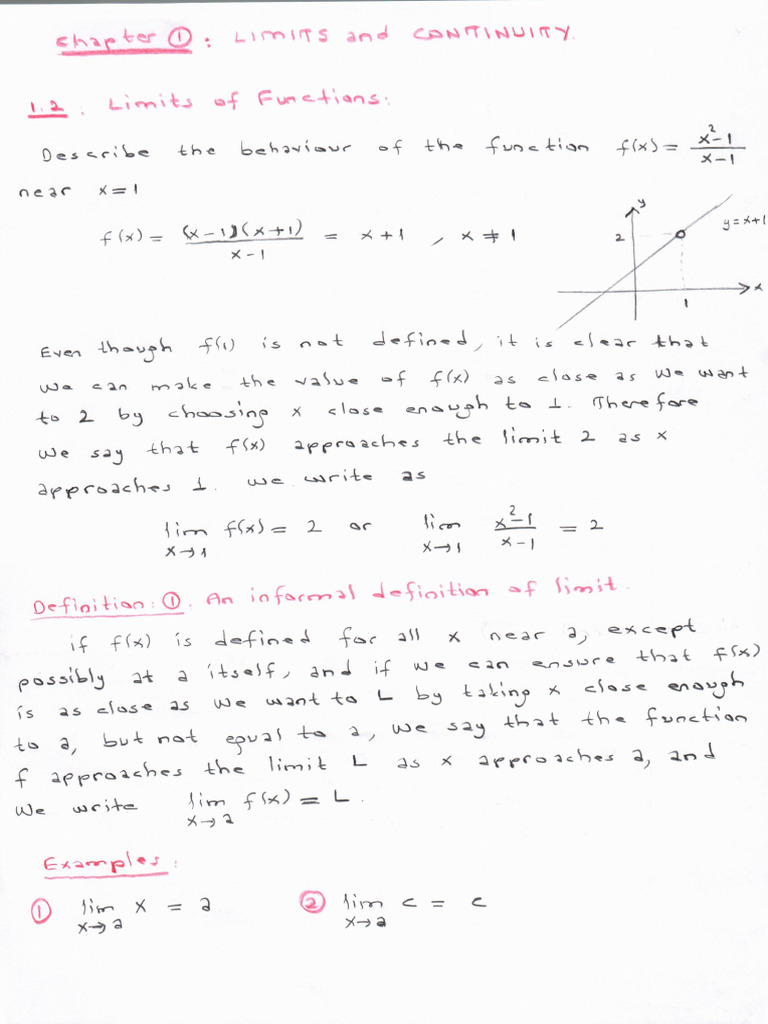 Chapter ①: LIMITS and CONTINUITY.
1.2: Limits of Functions:
Describe the behaviour of the function f(x) = (x²-1)/(x-1)
near x=1
f(x) = (x-1)(x+1)/(x-1) = x+1 , x ≠ 1
y
y=x+1
2
x
1
Even though f(1) is not defined, it is clear that
we can make the value of f(x) as close as we want
to 2 by choosing x close enough to 1. Therefore
we say that f(x) approaches the limit 2 as x
approaches 1. we write as
lim x→1 f(x) = 2 or lim x→1 (x²-1)/(x-1) = 2
Definition: ①. An informal definition of limit.
if f(x) is defined for all x near a, except
possibly at a itself, and if we can ensure that f(x)
is as close as we want to L by taking x close enough
to a, but not equal to a, we say that the function
f approaches the limit L as x approaches a, and
we write lim x→a f(x) = L.
Examples:
① lim x→a x = a ② lim x→a c = c